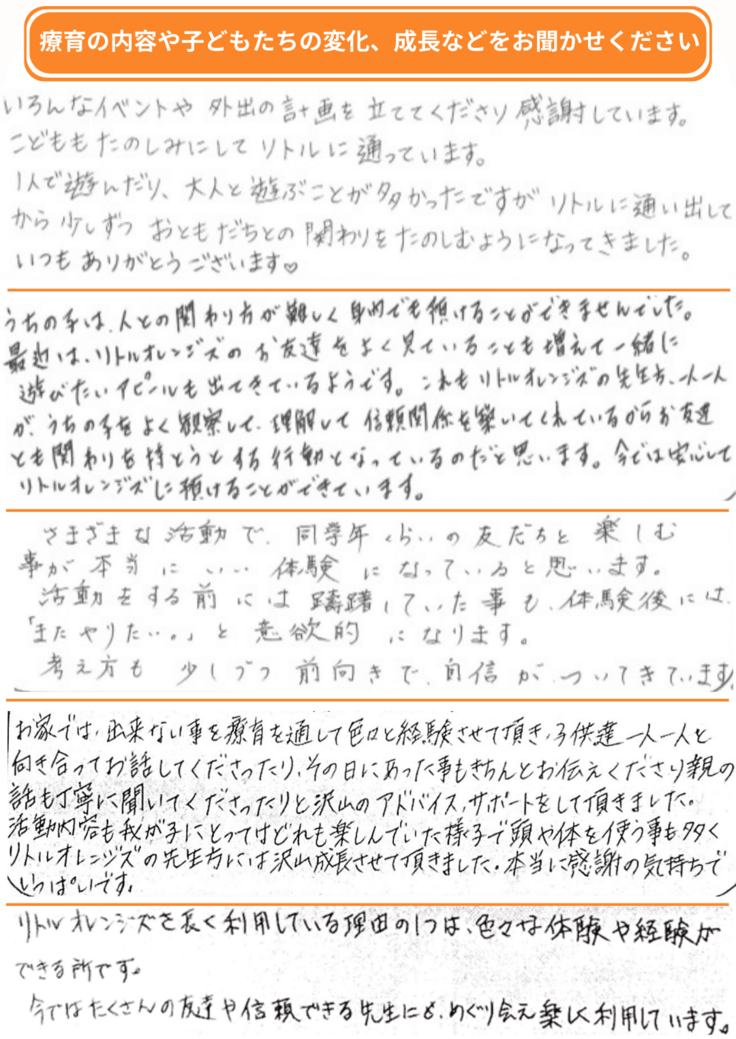 療育の内容や子どもたちの変化、成長などをお聞かせください
いろんなイベントや 外出の計画を 立ててくださり 感謝しています。
こどもも たのしみにして リトルに 通っています。
1人で遊んだり、大人と遊ぶことが多かったですが リトルに通い出して
から 少しずつ おともだちとの 関わりを たのしむようになってきました。
いつも ありがとうございます♡
うちの子は、人との関わり方が難しく 身内でも預けることができませんでした。
最近は、リトルオレンジズの お友達をよく見ていることも増えて一緒に
遊びたいアピールも出てきているようです。これも リトルオレンジズの先生方、一人一人
が、うちの子をよく観察して、理解して 信頼関係を築いてくれているからお友達
とも関わりを持とうとする行動となっているのだと思います。今では安心して
リトルオレンジズに預けることができています。
さまざまな活動で、同学年くらいの友だちと 楽しむ
事が 本当に いい 体験 になっていると思います。
活動をする前には 躊躇していた事も、体験後には、
「またやりたい。」と 意欲的 になります。
考え方も 少しづつ 前向きで、自信が、ついてきています。
お家では、出来ない事を療育を通して色々と経験させて頂き、子供達一人一人と
向き合ってお話してくださったり、その日にあった事もきちんとお伝えくださり親の
話も丁寧に聞いてくださったりと沢山のアドバイス、サポートをして頂きました。
活動内容も我が子にとってはどれも楽しんでいた様子で頭や体を使う事も多く
リトルオレンジズの先生方には沢山成長させて頂きました。本当に感謝の気持ちで
いっぱいです。
リトルオレンジズを長く利用している理由の1つは、色々な体験や経験が
できる所です。
今ではたくさんの友達や信頼できる先生にも、めぐり会え楽しく利用しています。